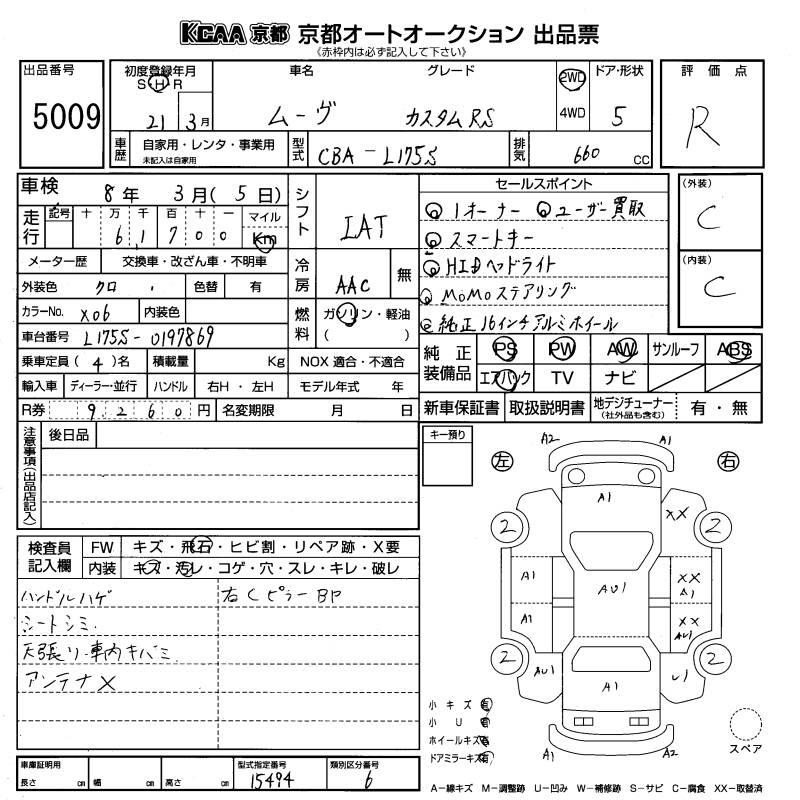 KCAA 京都 京都オートオークション 出品票
《赤枠内は必ず記入して下さい》
出品番号 5009
初度登録年月 S・H・R 21 3月
車名 ムーヴ
グレード カスタムRS
2WD 4WD
ドア・形状 5
評価点 R
車歴 自家用・レンタ・事業用 未記入は自家用
型式 CBA-L175S
排気 660 cc
車検 8年 3月(5日)
走行 記号 十 万 千 百 十 一 マイル Km
6 1 7 0 0
メーター歴 交換車・改ざん車・不明車
外装色 クロ 色替 有
カラーNo. X06 内装色
車台番号 L175S-0197869
乗車定員(4)名 積載量 Kg NOX 適合・不適合
輸入車 ディーラー・並行 ハンドル 右H・左H モデル年式 年
R券 9260円 名変期限 月 日
シフト IAT
冷房 AAC 無
燃料 ガソリン・軽油 ( )
セールスポイント
1オーナー ユーザー買取
スマートキー
HIDヘッドライト
MOMOステアリング
純正16インチアルミホイール
(外装) C
(内装) C
純正装備品 PS PW AW サンルーフ ABS
エアバック TV ナビ
新車保証書 取扱説明書 地デジチューナー (社外品も含む) 有・無
注意事項(出品店記入)
後日品
キー預り
検査員記入欄
FW キズ・飛石・ヒビ割・リペア跡・X要
内装 キズ・汚レ・コゲ・穴・スレ・キレ・破レ
ハンドルハゲ 右Cピラー BP
シートシミ
天張り・車内キバミ
アンテナX
左 右
A2 A1
A1
XX
2 2
A1 AU1 XX A1
A1 XX AU1
2 2
AU1 A1 U1
A1 A2
小キズ 有
小U 有
ホイールキズ 有
ドアミラーキズ 有
スペア
車庫証明用 長さ cm 幅 cm 高さ cm
型式指定番号 15494
類別区分番号 6
A-線キズ M-調整跡 U-凹み W-補修跡 S-サビ C-腐食 XX-取替済